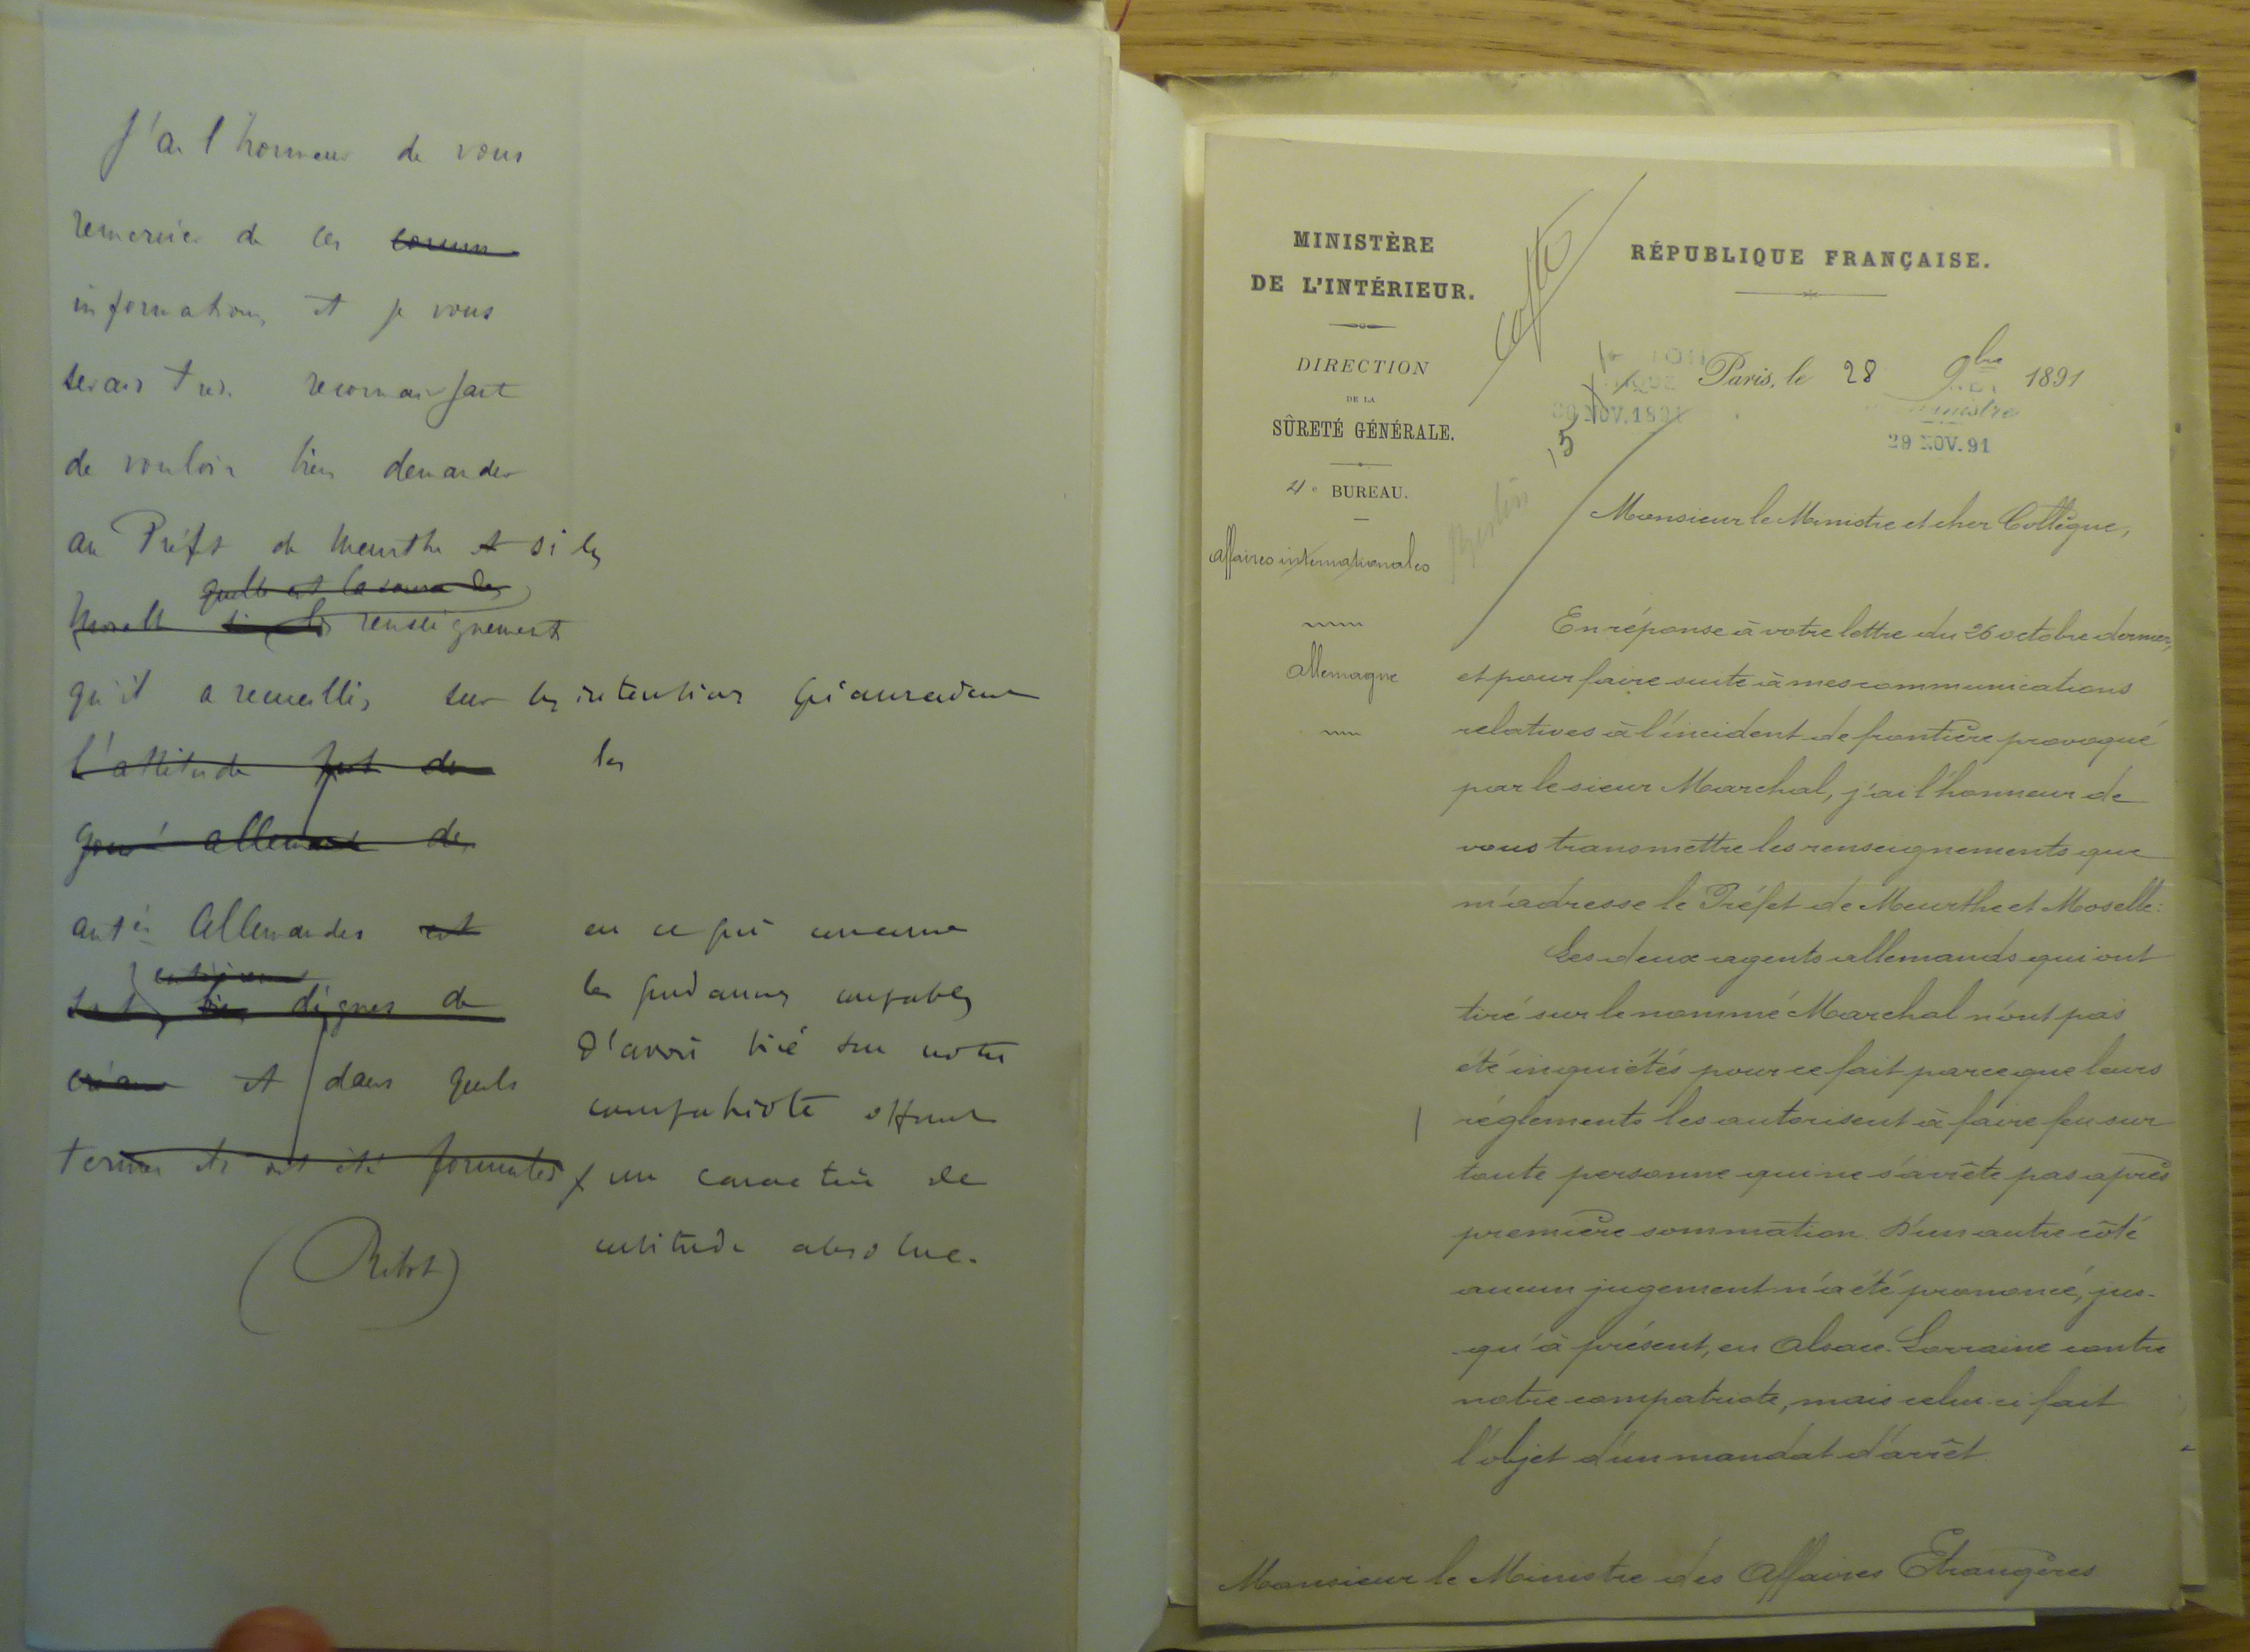 J'ai l'honneur de vous
remercier de ces comm
informations, et je vous
serais très reconnaissant
de vouloir bien demander
au Préfet de Meurthe et si les
quelle est la source des
Moselle si les renseignements
qu'il a recueillis sur les intentions qu'auraient
l'attitude les
gouvt allemand de
autés Allemandes en ce qui concerne
les gendarmes coupables
dignes de
d'avoir tiré sur notre
et dans quels
compatriote offrent
termes ils ont été formulés
un caractère de
certitude absolue.
(Ribot)
MINISTÈRE
DE L'INTÉRIEUR.
DIRECTION
DE LA
SÛRETÉ GÉNÉRALE.
4e BUREAU.
Affaires internationales
Allemagne
RÉPUBLIQUE FRANÇAISE.
Paris, le 28 9bre 1891
NOV. 1891
29 NOV. 91
15
Berlin
Monsieur le Ministre et cher Collègue,
En réponse à votre lettre du 26 octobre dernier,
et pour faire suite à mes communications
relatives à l'incident de frontière provoqué
par le sieur Marchal, j'ai l'honneur de
vous transmettre les renseignements que
m'adresse le Préfet de Meurthe et Moselle:
Les deux agents allemands qui ont
tiré sur le nommé Marchal n'ont pas
été inquiétés pour ce fait parce que leurs
réglements les autorisent à faire feu sur
toute personne qui ne s'arrête pas après
première sommation. D'un autre côté
aucun jugement n'a été prononcé, jus-
qu'à présent, en Alsace-Lorraine contre
notre compatriote, mais celui-ci fait
l'objet d'un mandat d'arrêt.
Monsieur le Ministre des Affaires Etrangères